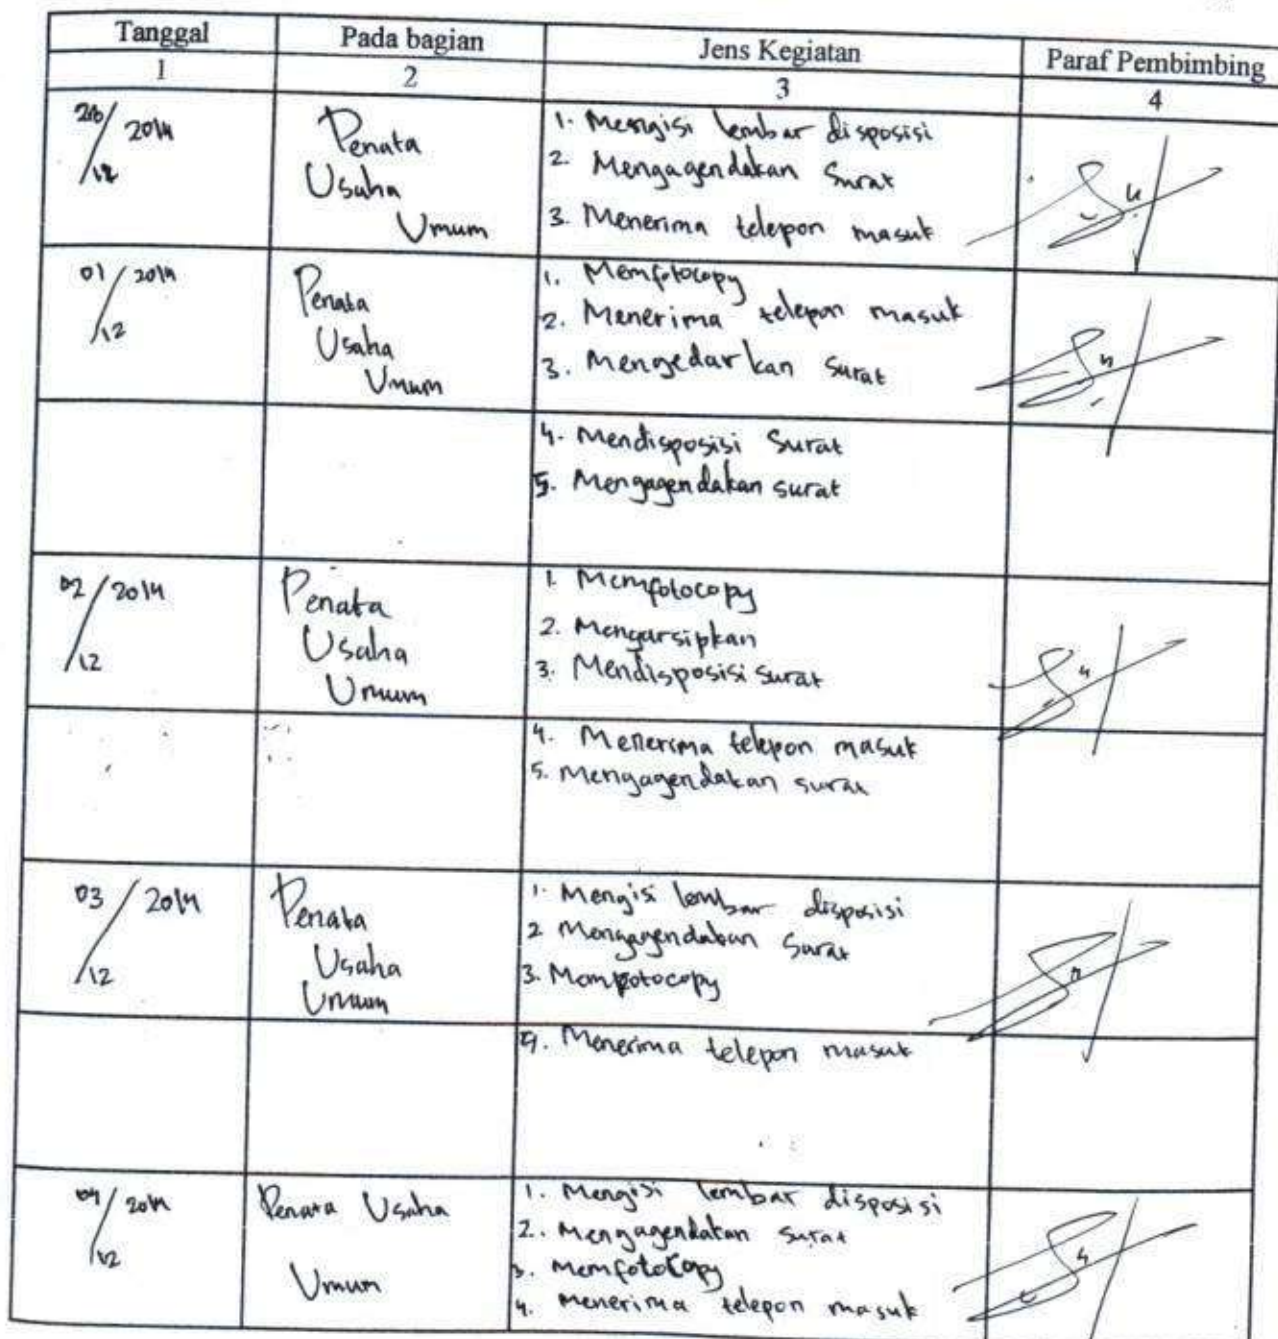 Tanggal Pada bagian Jens Kegiatan Paraf Pembimbing
1 2 3 4
2014
Penata
Usaha
Umum
1. Mengisi lembar disposisi
2. Mengagendakan Surat
3. Menerima telepon masuk
01/12 2014
Penata
Usaha
Umum
1. Memfotocopy
2. Menerima telepon masuk
3. Mengedarkan Surat
4. Mendisposisi Surat
5. Mengagendakan surat
02/12 2014
Penata
Usaha
Umum
1. Memfotocopy
2. Mengarsipkan
3. Mendisposisi surat
4. Menerima telepon masuk
5. Mengagendakan surat
03/12 2014
Penata
Usaha
Umum
1. Mengisi lembar disposisi
2 Mengagendakan Surat
3. Memfotocopy
4. Menerima telepon masuk
04/12 2014
Penata Usaha
Umum
1. Mengisi lembar disposisi
2. Mengagendakan surat
3. Memfotocopy
4. Menerima telepon masuk